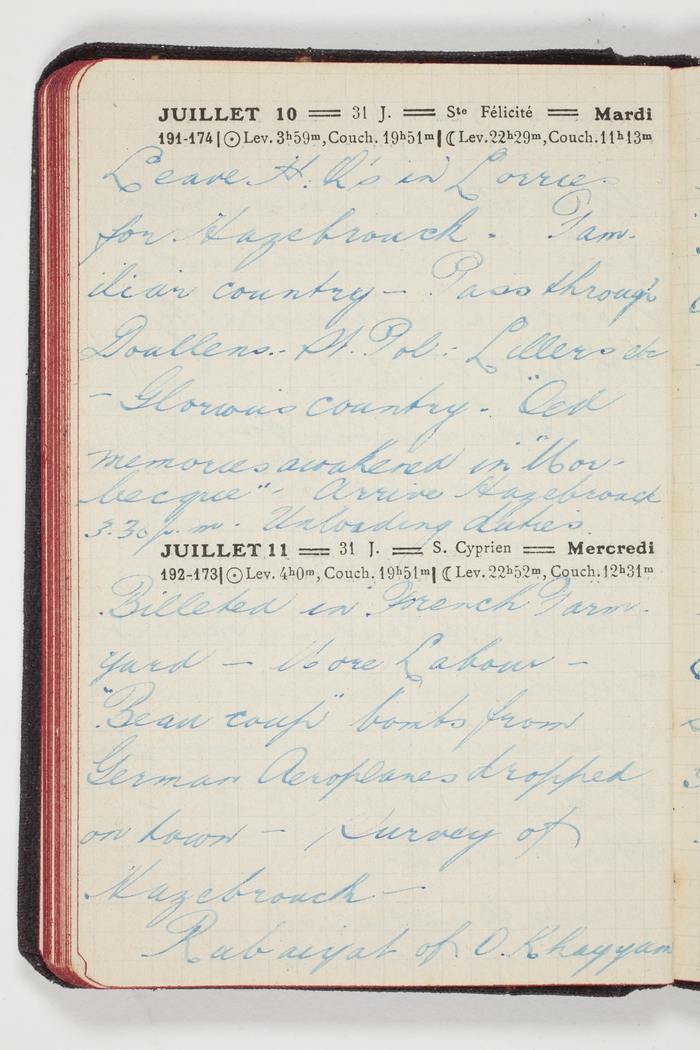 JUILLET 10 == 31 J. == Ste Félicité == Mardi
191-174|☉Lev. 3h59m, Couch. 19h51m|☾Lev. 22h29m, Couch. 11h13m
Leave H. Q's in Lorries
for Hazebrouck - Fam-
iliar country - Pass through
Doullens - St. Pol - Lillers etc
- Glorious country. "Oed
memories awakened in "Mor-
becque" - Arrive Hazebrouck
3.30 p.m. Unloading duties.
JUILLET 11 == 31 J. == S. Cyprien == Mercredi
192-173|☉Lev. 4h0m, Couch. 19h51m|☾Lev. 22h52m, Couch. 12h31m
Billeted in French Farm-
yard - More Labour -
"Beau coup" bombs from
German Aeroplanes dropped
on town - Survey of
Hazebrouck -
Rubaiyat of O. Khayyam